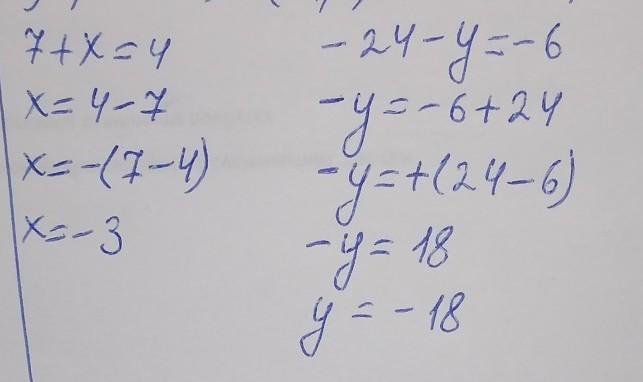 7+x=4
x=4-7
x=-(7-4)
x=-3
-24-y=-6
-y=-6+24
-y=+(24-6)
-y=18
y=-18